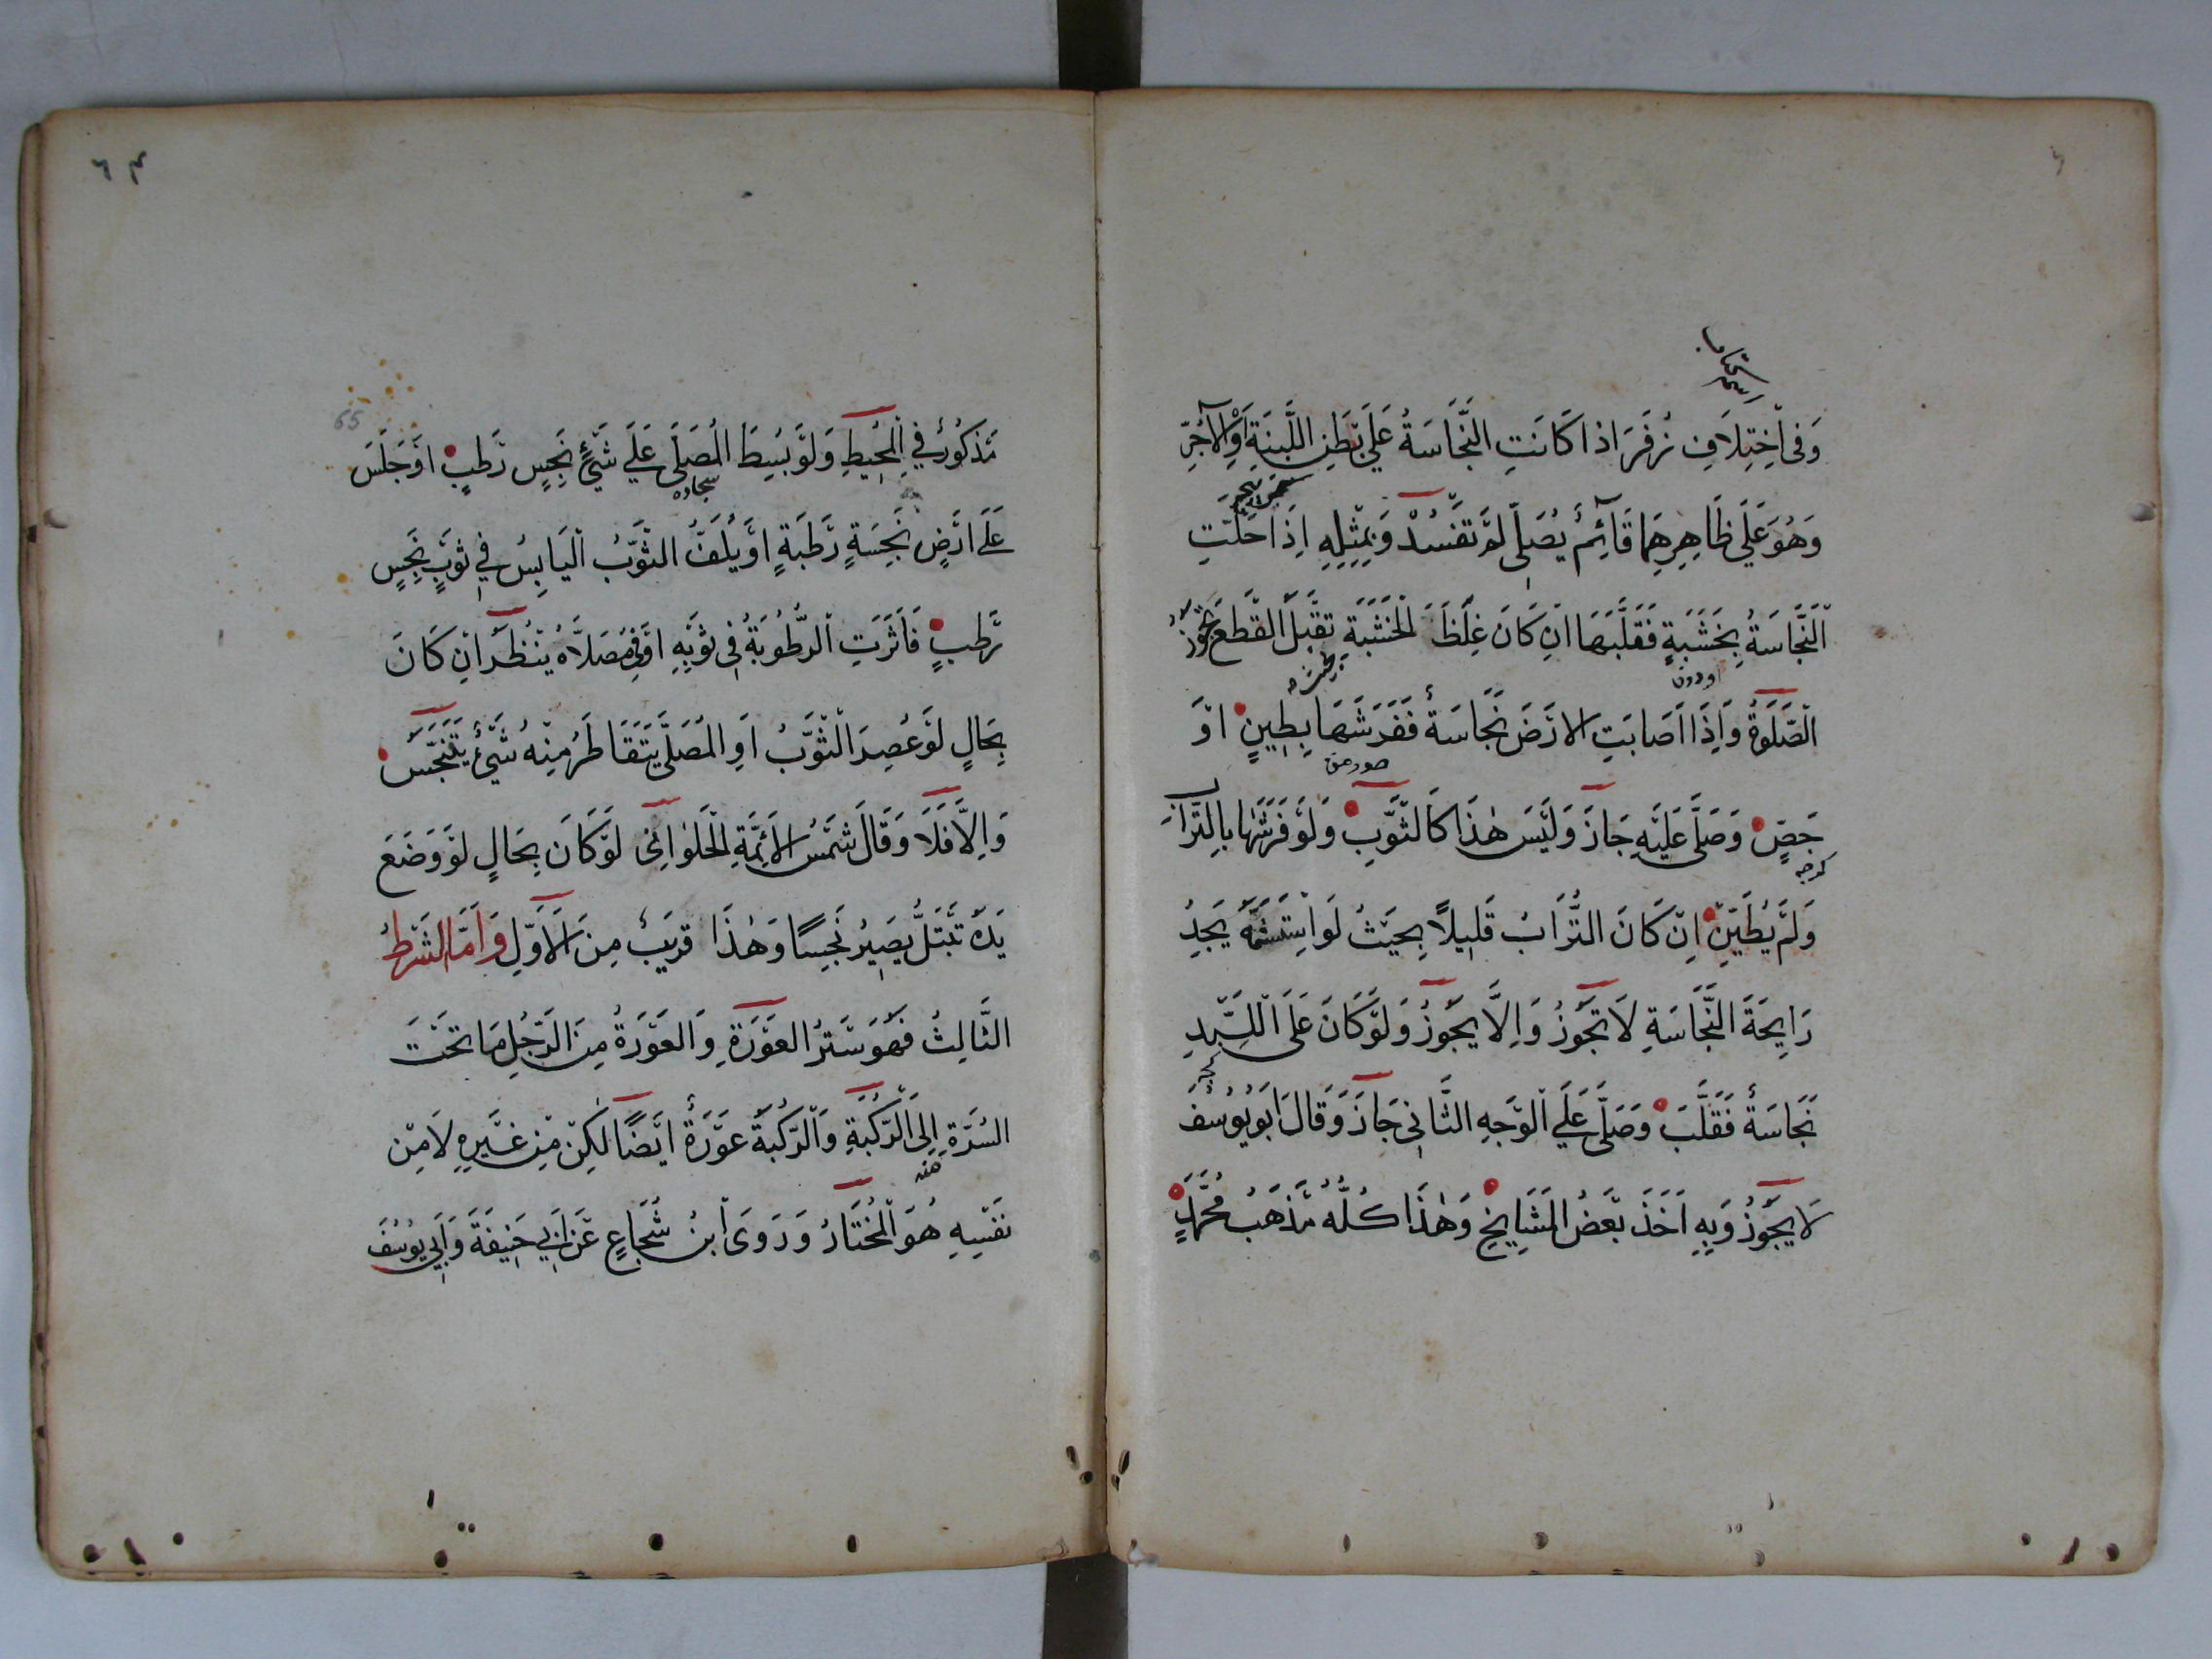 وَفِى اخْتِلَافِ زُفَرَ اذا كَانَتِ النَّجَاسَةُ عَلَى بَطْنِ اللَّبِنَةِ اَوِ الْآجُرِّ
وَهُوَ عَلَى ظَاهِرِهِمَا قَائِمٌ يُصَلِّى لَمْ تَفْسُدْ وَبِمِثْلِهِ اِذَا حَلَّتِ
النَّجَاسَةُ بِخَشَبَةٍ فَقَلَّبَهَا اِنْ كَانَ غِلَظُ الْخَشَبَةِ تَقْبَلُ الْقَطْعَ تَجُوزُ
اودون
الصَّلَوةُ وَاِذَا اَصَابَتِ الْارْضَ نَجَاسَةٌ فَفَرَشَهَا بِطِينٍ اَوْ
جَصٍّ وَصَلَّى عَلَيْهِ جَازَ وَلَيْسَ هٰذَا كَالثَّوْبِ وَلَوْ فَرَشَهَا بِالتُّرَابِ
وَلَمْ يُطَيِّنْ اِنْ كَانَ التُّرَابُ قَلِيلًا بِحَيْثُ لَوِ اسْتَشَمَّهُ يَجِدُ
رَايِحَةَ النَّجَاسَةِ لَا تَجُوزُ وَاِلَّا يَجُوزُ وَلَوْ كَانَ عَلَى اللِّبْدِ
نَجَاسَةٌ فَقَلَّبَ وَصَلَّى عَلَى الْوَجْهِ الثَّانِى جَازَ وَقَالَ اَبُو يُوسُفَ
لَا يَجُوزُ وَبِهِ اَخَذَ بَعْضُ الْمَشَايِخِ وَهٰذَا كُلُّهُ مَذْهَبُ مُحَمَّدٍ
٦٤
65
مَذْكُورٌ فِي الْمُحِيطِ وَلَوْ بُسِطَ الْمُصَلَّى عَلَى شَيْءٍ نَجِسٍ رَطْبٍ اَوْ جَلَسَ
سجاده
عَلَى ارْضٍ نَجِسَةٍ رَطْبَةٍ اَوْ يُلَفُّ الثَّوْبُ الْيَابِسُ فِي ثَوْبٍ نَجِسٍ
رَطْبٍ فَاَثَّرَتِ الرُّطُوبَةُ فِى ثَوْبِهِ اَوْ فِي مُصَلَّاهُ يُنْظَرُ اِنْ كَانَ
بِحَالٍ لَوْ عُصِرَ الثَّوْبُ اَوِ الْمُصَلَّى يَتَقَاطَرُ مِنْهُ شَيْءٌ يَتَنَجَّسُ
وَاِلَّا فَلَا وَقَالَ شَمْسُ الْاَئِمَّةِ الْحَلْوَانِى لَوْ كَانَ بِحَالٍ لَوْ وَضَعَ
يَدَهُ تَبْتَلُّ يَصِيرُ نَجِسًا وَهٰذَا قَرِيبٌ مِنَ الْاَوَّلِ وَاَمَّا الشَّرْطُ
الثَّالِثُ فَهُوَ سَتْرُ الْعَوْرَةِ وَالْعَوْرَةُ مِنَ الرَّجُلِ مَا تَحْتَ
السُّرَّةِ اِلَى الرُّكْبَةِ وَالرُّكْبَةُ عَوْرَةٌ اَيْضًا لٰكِنْ مِنْ غَيْرِهِ لَا مِنْ
نَفْسِهِ هُوَ الْمُخْتَارُ وَرَوَى ابْنُ شُجَاعٍ عَنْ اَبِي حَنِيفَةَ وَاَبِي يُوسُفَ